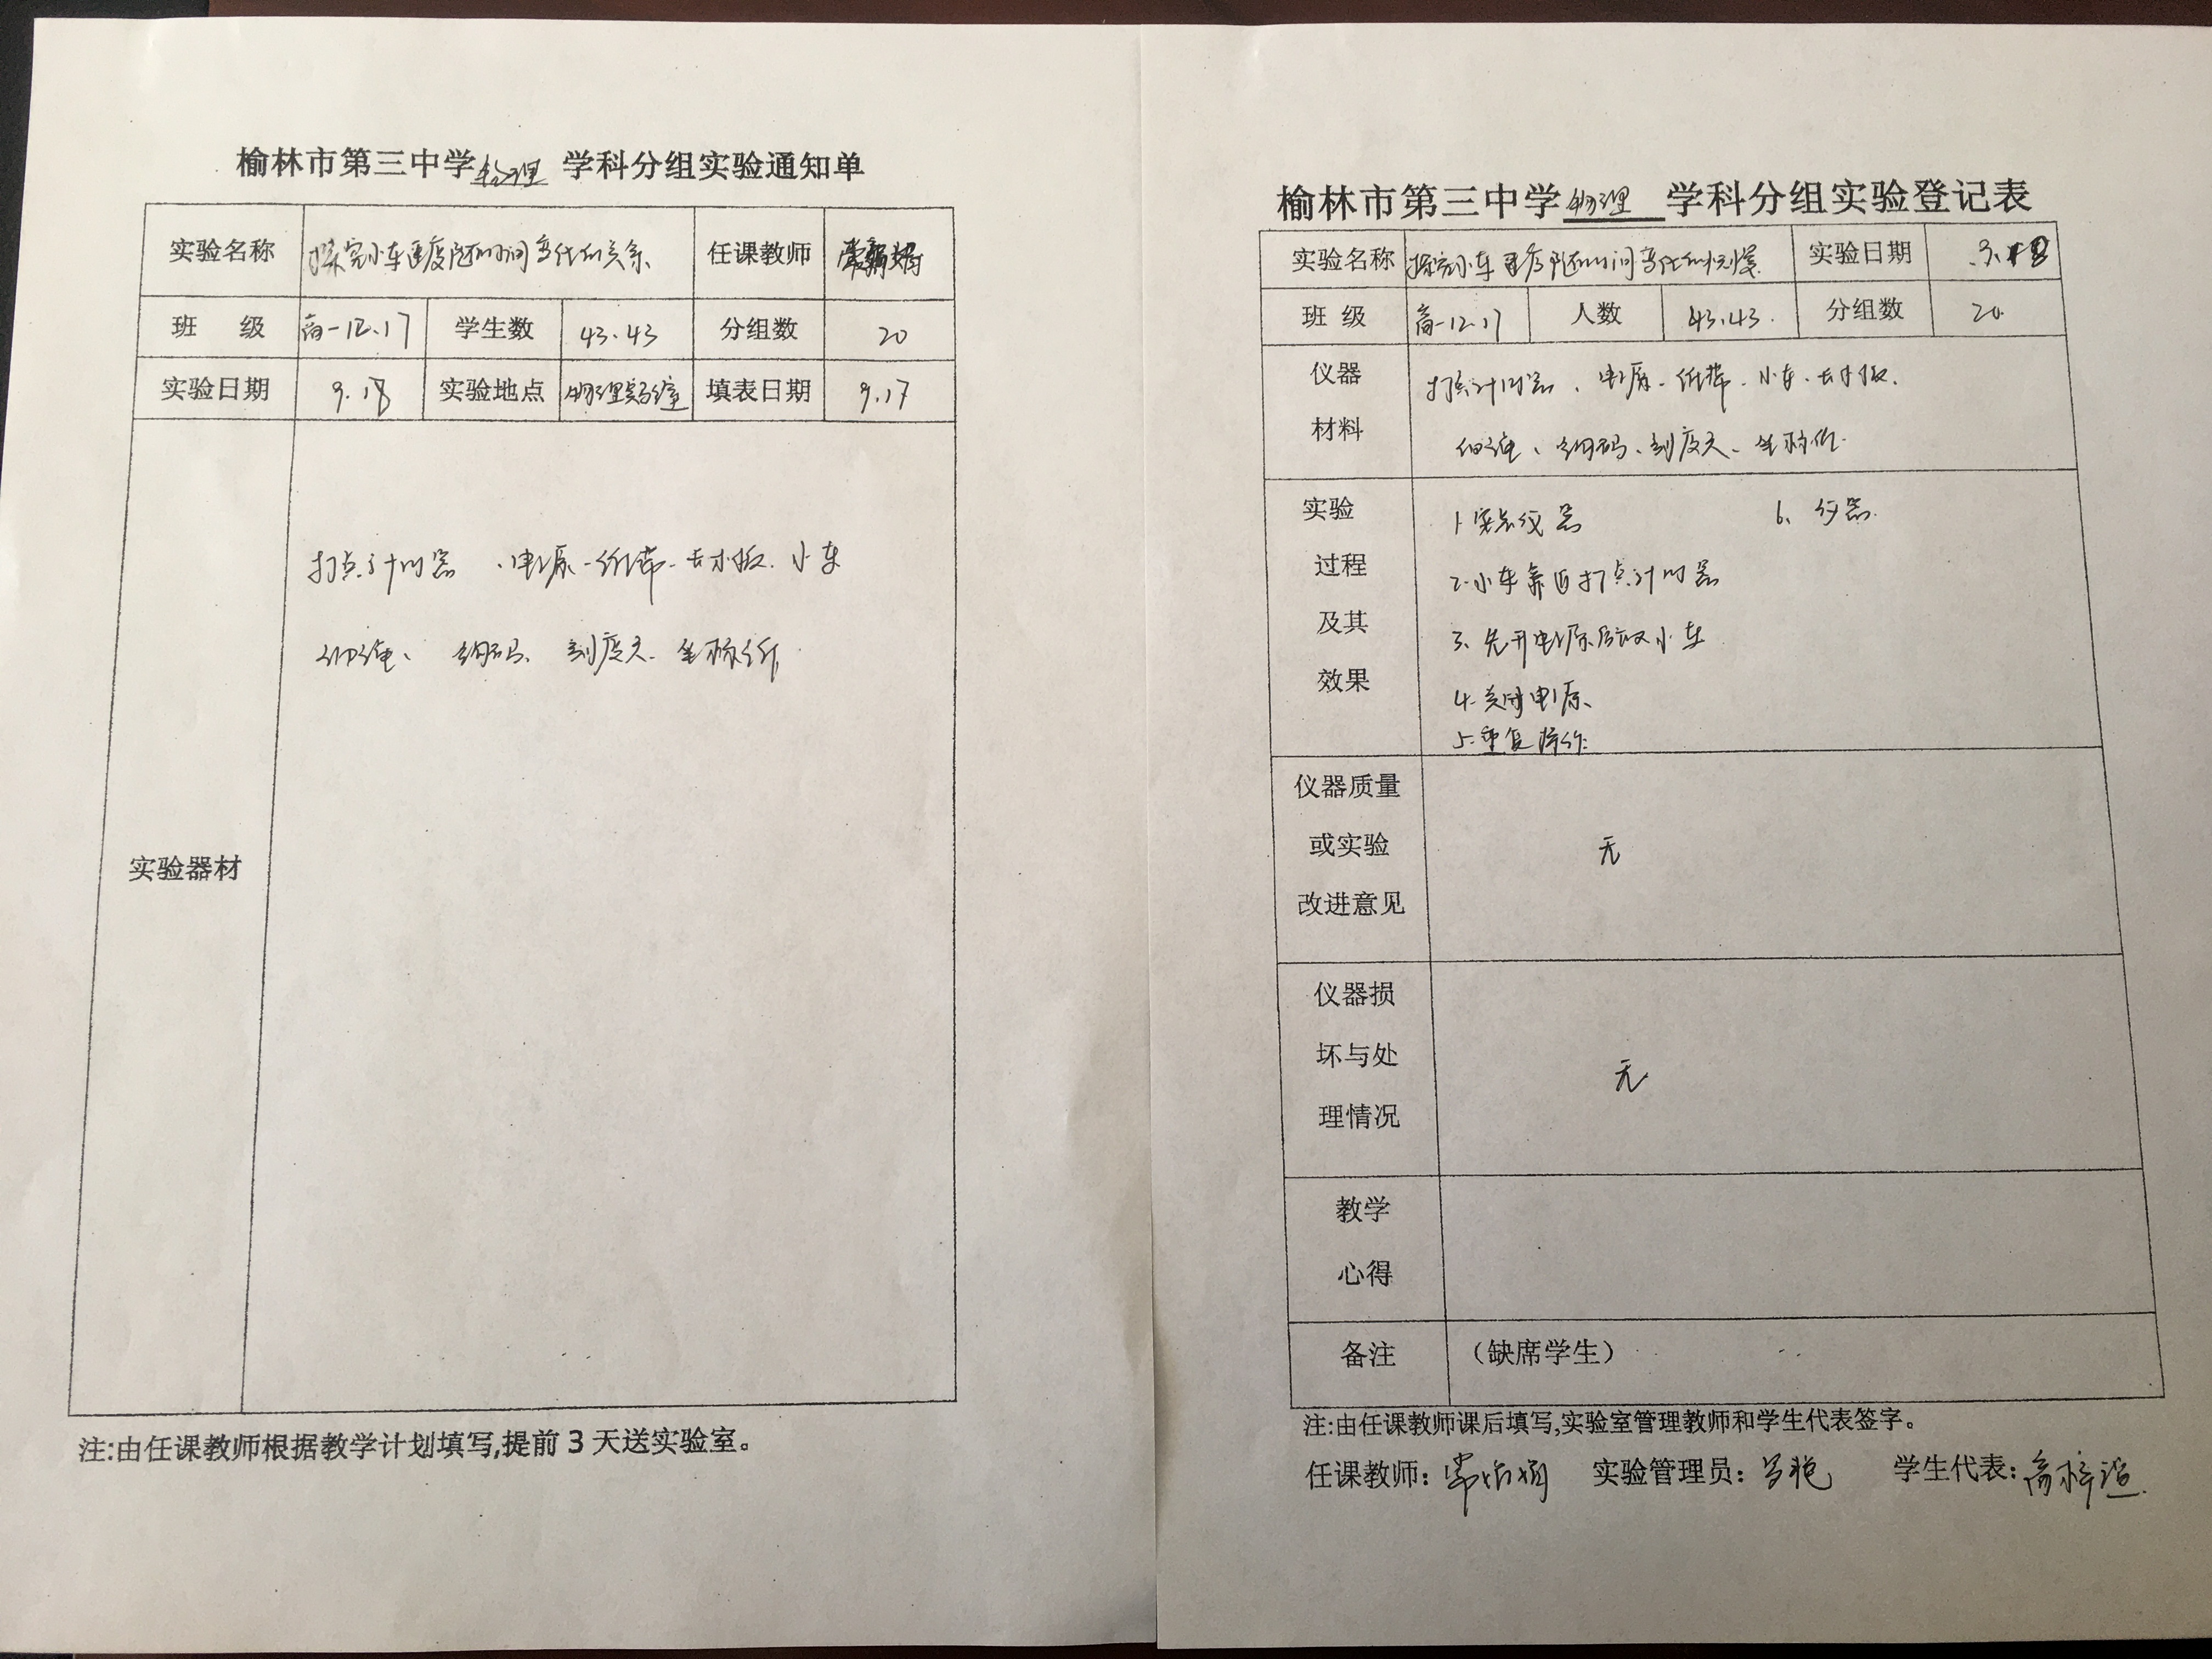 榆林市第三中学物理 学科分组实验通知单
实验名称 探究小车速度随时间变化的关系 任课教师
班 级 高一12、17 学生数 43、43 分组数 20
实验日期 9.18 实验地点 物理实验室 填表日期 9.17
实验器材
打点计时器、电源、纸带、长木板、小车
细绳、钩码、刻度尺、坐标纸.
注:由任课教师根据教学计划填写,提前3天送实验室。
榆林市第三中学物理 学科分组实验登记表
实验名称 探究小车速度随时间变化的规律 实验日期
班 级 高一12.17 人数 43.43. 分组数 20.
仪器
材料
打点计时器、电源、纸带、小车、长木板.
细绳、钩码、刻度尺、坐标纸.
实验
过程
及其
效果
1. 仪器 6、仪器.
2.小车靠近打点计时器
3、先开电源后放小车
4.关闭电源、
5.重复操作.
仪器质量
或实验
改进意见
无
仪器损
坏与处
理情况
无
教学
心得
备注 （缺席学生）
注:由任课教师课后填写,实验室管理教师和学生代表签字。
任课教师: 实验管理员: 学生代表: